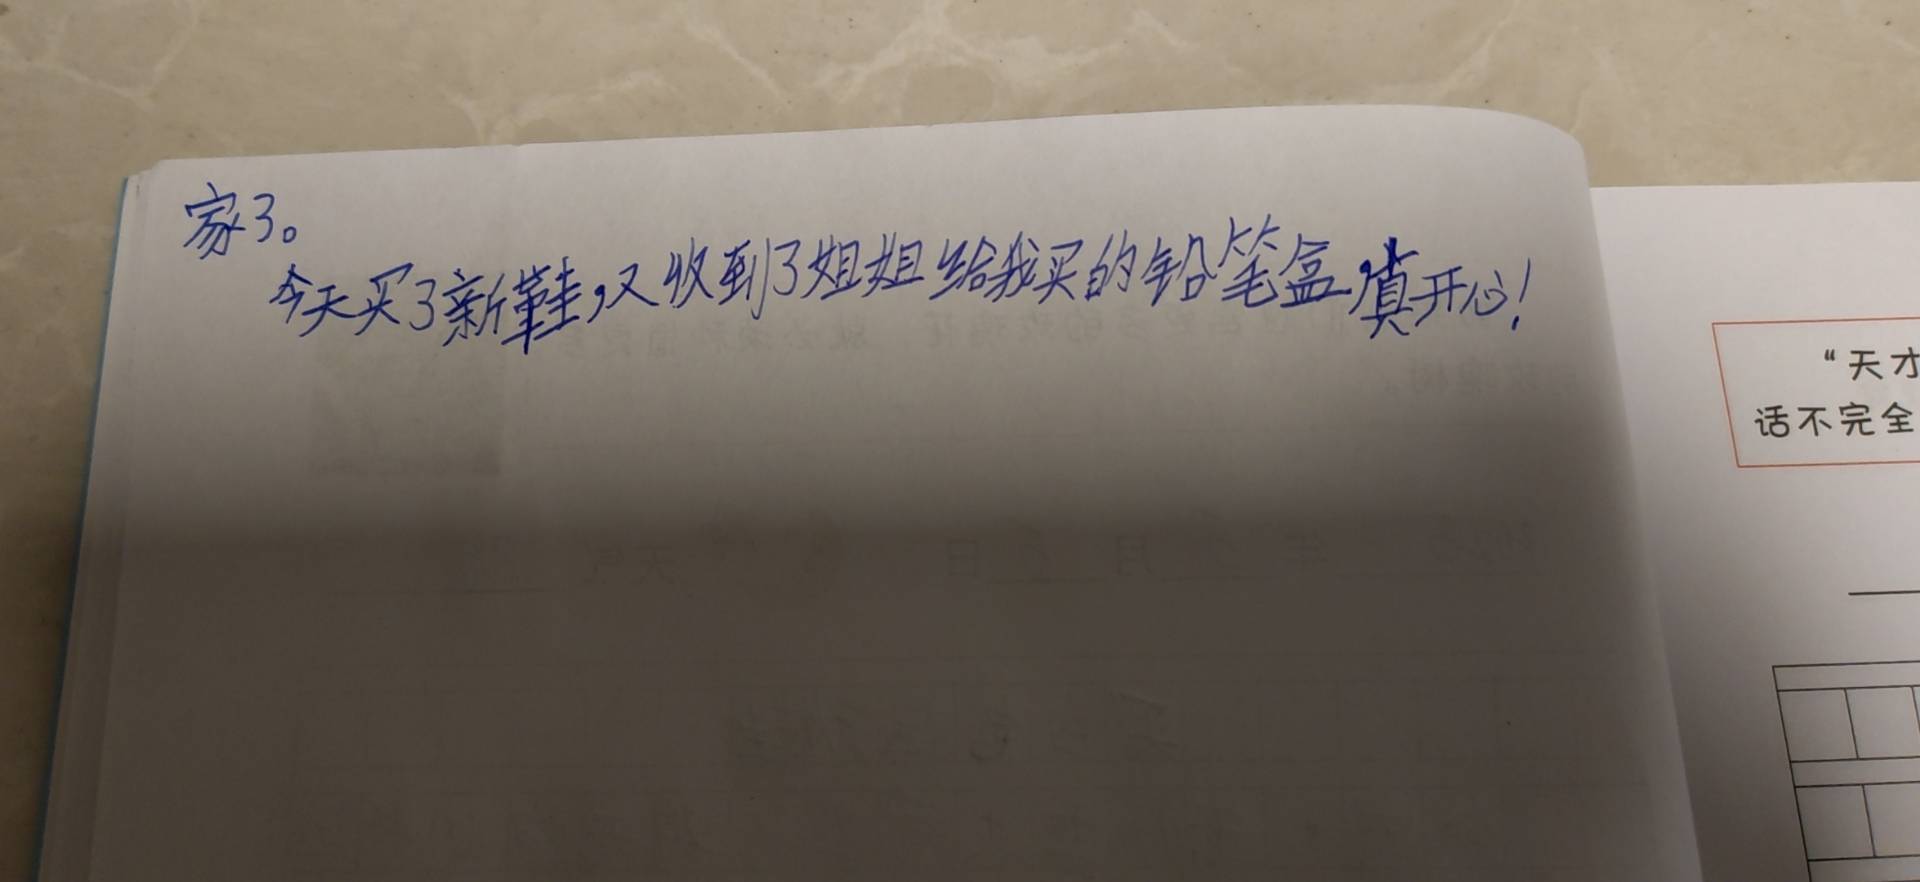 家了。
今天买了新鞋,又收到了姐姐给我买的铅笔盒,真开心!
“天才
话不完全